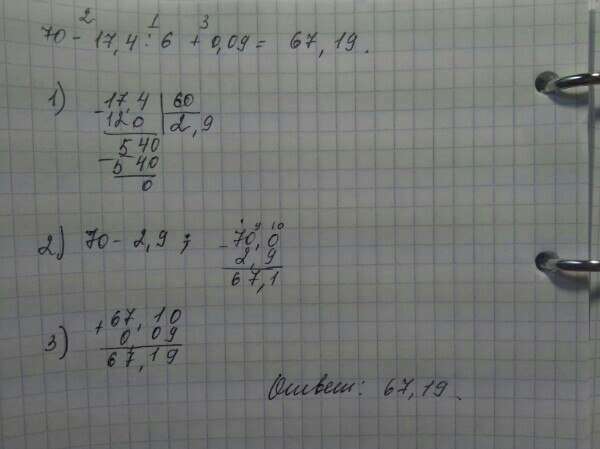 2 1 3
70 - 17,4 : 6 + 0,09 = 67,19.
1) - 17,4 | 60
120 | 2,9
540
- 540
0
2) 70 - 2,9 ; 9 10
- 70,0
2,9
67,1
3) + 67,10
0 09
67,19
Ответ: 67,19.